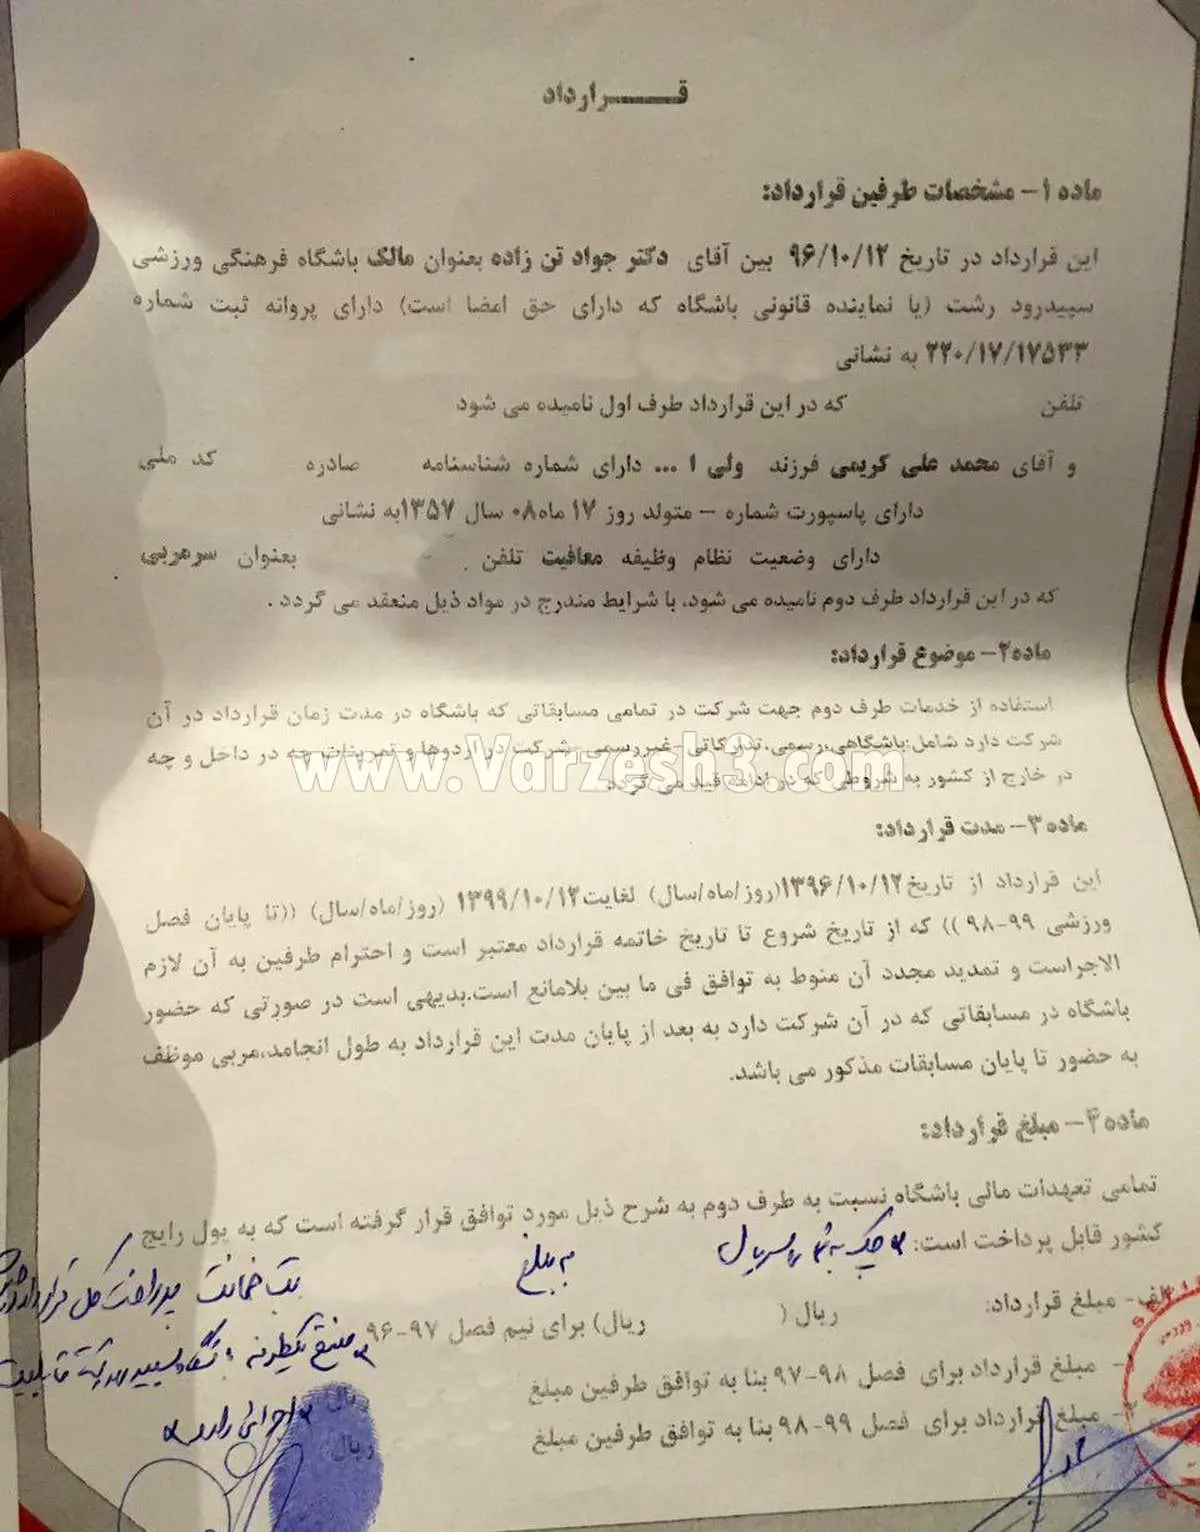 قـــــرارداد
ماده ۱- مشخصات طرفین قرارداد:
این قرارداد در تاریخ ۹۶/۱۰/۱۲ بین آقای دکتر جواد تن زاده بعنوان مالک باشگاه فرهنگی ورزشی
سپیدرود رشت (یا نماینده قانونی باشگاه که دارای حق امضا است) دارای پروانه ثبت شماره
۲۲۰/۱۷/۱۷۵۳۳ به نشانی
تلفن که در این قرارداد طرف اول نامیده می شود
و آقای محمد علی کریمی فرزند ولی ا ... دارای شماره شناسنامه صادره کد ملی
دارای پاسپورت شماره – متولد روز ۱۷ ماه۰۸ سال ۱۳۵۷به نشانی
دارای وضعیت نظام وظیفه معافیت تلفن بعنوان سرمربی
که در این قرارداد طرف دوم نامیده می شود، با شرایط مندرج در مواد ذیل منعقد می گردد .
ماده۲- موضوع قرارداد:
استفاده از خدمات طرف دوم جهت شرکت در تمامی مسابقاتی که باشگاه در مدت زمان قرارداد در آن
شرکت دارد شامل:باشگاهی،رسمی،تدارکاتی-غیررسمی-شرکت در اردوها و تمرینات چه در داخل و چه
در خارج از کشور به شروطی که در ادامه قید می گردد
www.Varzesh3.com
ماده۳- مدت قرارداد:
این قرارداد از تاریخ۱۳۹۶/۱۰/۱۲(روز/ماه/سال) لغایت۱۳۹۹/۱۰/۱۲ (روز/ماه/سال) ((تا پایان فصل
ورزشی ۹۹-۹۸)) که از تاریخ شروع تا تاریخ خاتمه قرارداد معتبر است و احترام طرفین به آن لازم
الاجراست و تمدید مجدد آن منوط به توافق فی ما بین بلامانع است.بدیهی است در صورتی که حضور
باشگاه در مسابقاتی که در آن شرکت دارد به بعد از پایان مدت این قرارداد به طول انجامد،مربی موظف
به حضور تا پایان مسابقات مذکور می باشد.
ماده۴- مبلغ قرارداد:
تمامی تعهدات مالی باشگاه نسبت به طرف دوم به شرح ذیل مورد توافق قرار گرفته است که به پول رایج
کشور قابل پرداخت است: چک به به مبلغ بابت ضمانت پرداخت کل قرارداد
الف- مبلغ قرارداد: ریال ( ریال) برای نیم فصل ۹۷-۹۶
مبلغ قرارداد برای فصل ۹۸-۹۷ بنا به توافق طرفین مبلغ ریال
مبلغ قرارداد برای فصل ۹۹-۹۸ بنا به توافق طرفین مبلغ ریال